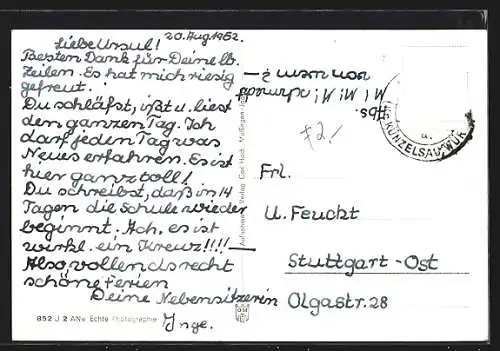 20. Aug 1952.
Liebe Ursul!
Besten Dank für Deine lb.
Zeilen. Es hat mich riesig
gefreut.
Du schläfst, ißt u. liest
den ganzen Tag. Ich
darf jeden Tag was
Neues erfahren. Es ist
hier ganz toll!
Du schreibst, daß in 14
Tagen die Schule wieder
beginnt. Ach, es ist
wirkl. ein Kreuz!!!!
Also vollends recht
schöne Ferien
Deine Nebensitzerin
Inge.
Abs.
von wem?
+2,-
KÜNZELSAU, WÜR
a
Frl.
U. Feucht
Stuttgart-Ost
Olgastr. 28
Aufnahme u. Verlag
852 J 2 ANe Echte Photographie